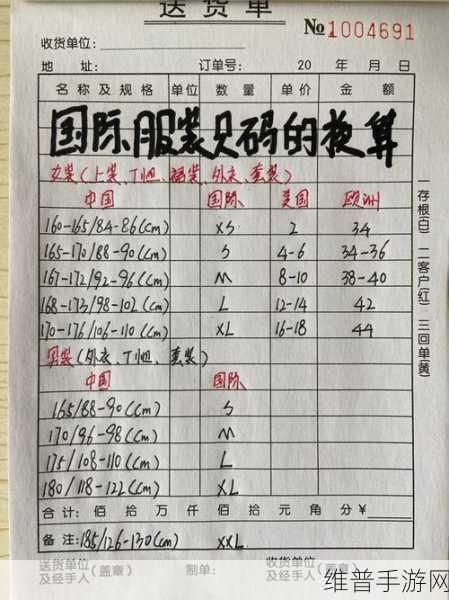 送货单
No 1004691
收货单位:
地 址: 订单号: 20 年 月 日
名称及规格 单位 数量 单价 金额
国际服装尺码的换算
女装(上装、T恤、裙装、外衣、套装)
中国 国际 美国 欧洲
160-165/84-86(cm) XS 2 34
165-170/88-90(cm) S 4-6 34-36
167-172/92-96(cm) M 8-10 38-40
168-173/98-102(cm) L 12-14 42
170-176/106-110(cm) XL 16-18 44
男装(外衣、T恤、套装)
中国 国际
165/88-90(cm) S
170/96-98(cm) M
175/108-110(cm) L
180/118-122(cm) XL
合计: 佰 拾 万 仟 佰 拾 元 角 分 ¥
备注: 185/126-130(cm) XXL
送货单位及经手人(盖章) 制单: 收货单位及经手人(盖章)
一存根(白) 二客户(红) 三回单(黄)
维普手游网